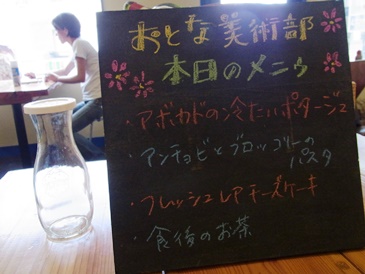 おとな美術部
本日のメニュー
・アボカドの冷たいポタージュ
・アンチョビとブロッコリーの
パスタ
・フレッシュレアチーズケーキ
・食後のお茶